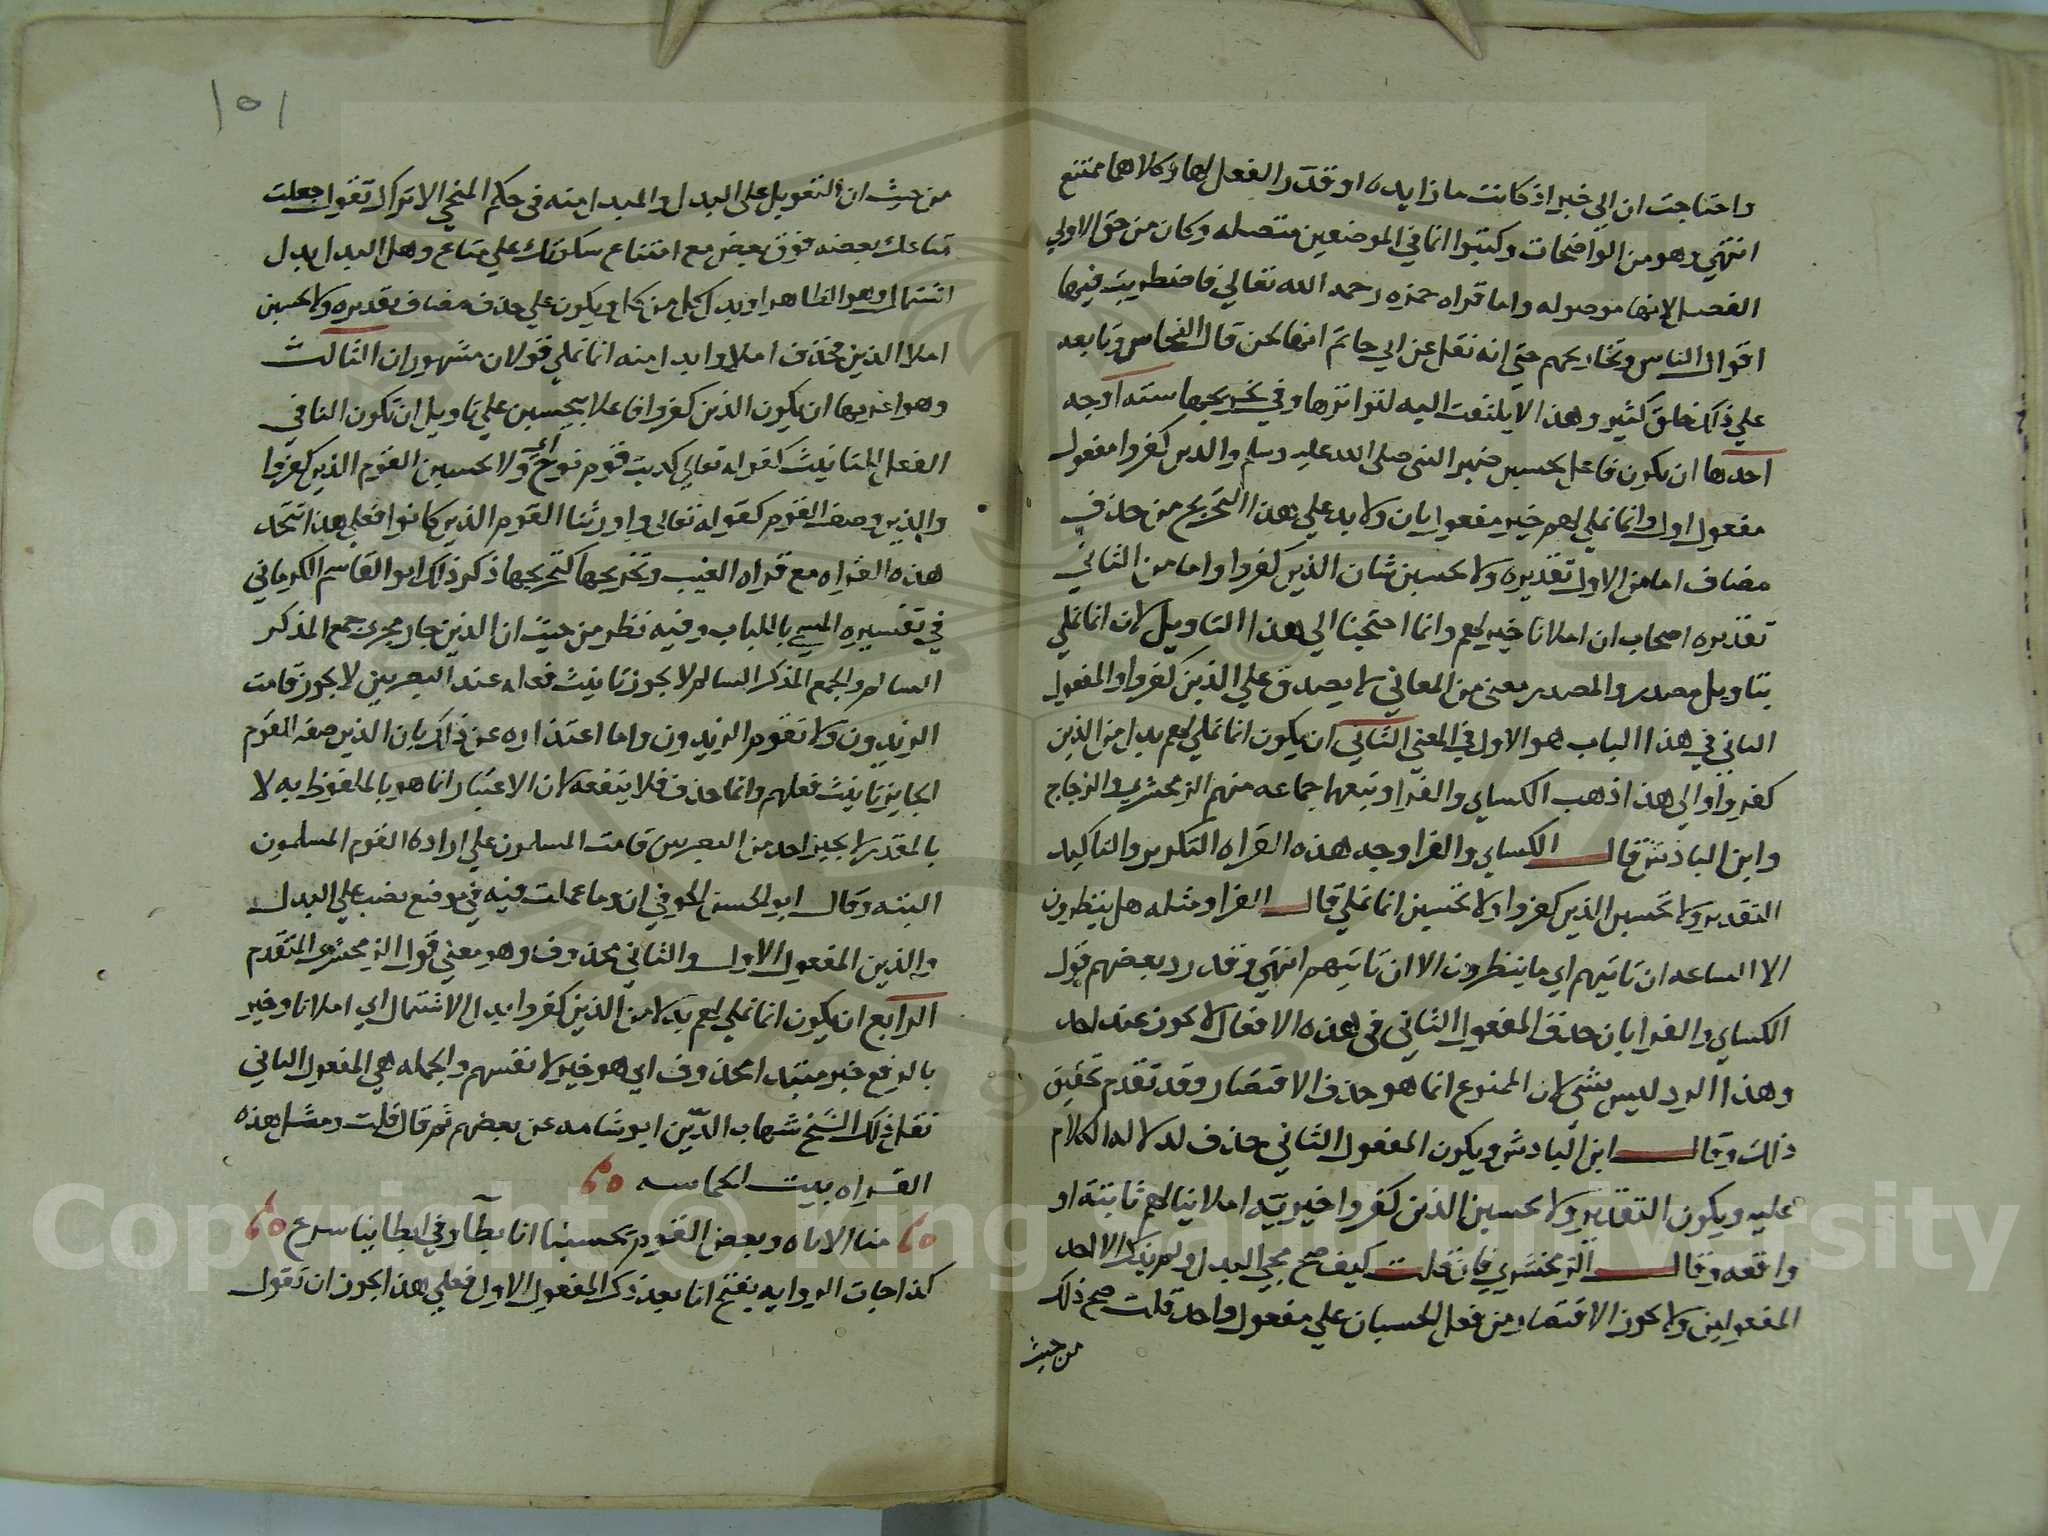 واحتاجت ان الي خبر اذ كانت ما زايده او تقدر الفعل لها وكلاهما ممتنع
انتهي وهو من الواضحات وكتبوا انما في الموضعين متصله وكان من حق الاولي
الفصل لانها موصوله واما قراه حمزه رحمه الله تعالي فاضطربت فيها
اقوال الناس وتخاريجهم حتي انه نقل عن ابي حاتم انها لحن قال النحاس وتابعه
علي ذلك خلق كثير وهذا لا يلتفت اليه لتواترها وفي تخريجها ستة اوجه
احدها ان يكون فاعل تحسبن ضمير النبي صلى الله عليه وسلم والذين كفروا مفعول
مفعول اول وانما نملي لهم خير مفعول ثان ولا بد علي هذا التخريج من حذف
مضاف اما من الاول تقديره ولا تحسبن شان الذين كفروا واما من الثاني
تقديره اصحاب ان املانا خير لهم وانما احتجنا الي هذا التاويل لان انما نملي
بتاويل مصدر والمصدر معني من المعاني لا يصدق علي الذين كفروا والمفعول
الثاني في هذا الباب هو الاول في المعني الثاني ان يكون انما نملي لهم بدل من الذين
كفروا والي هذا ذهب الكساي والفرا وتبعهما جماعه منهم الزمخشري والزجاج
وابن الباذش قال الكساي والفرا وجه هذه القراه التكرير والتاكيد
التقدير ولا تحسبن الذين كفروا ولا تحسبن انما نملي قال الفرا ومثله هل ينظرون
الا الساعه ان تاتيهم اي ما ينظرون الا ان تاتيهم انتهي وقد رد بعضهم قول
الكساي والفرا بان حذف المفعول الثاني في هذه الافعال لا يجوز عند احد
وهذا الرد ليس بشي لان الممنوع انما هو حذف الاقتصار وقد تقدم تحقيق
ذلك وقال ابن الباذش ويكون المفعول الثاني حذف لدلاله الكلام
عليه ويكون التقدير ولا تحسبن الذين كفروا خيريته املائنا لهم ثابتة او
واقعه وقال الزمخشري فان قلت كيف صح مجي البدل ولم يذكر الا احد
المفعولين ولا يجوز الاقتصار من فعل الحسبان علي مفعول واحد قلت صح ذلك
من حيث
١٥١
من حيث ان التعويل علي البدل والمبدل منه في حكم المنحي الا تراك تقول جعلت
متاعك بعضه فوق بعض مع امتناع سكوتك علي متاع وهل البدل بدل
اشتمال وهو الظاهر او بدل كل من كل ويكون علي حذف مضاف تقديره ولا تحسبن
املا الذين فحذف املا وابدل منه انما نملي قولان مشهوران الثالث
وهو اغربها ان يكون الذين كفروا فاعلا بتحسبن علي تاويل ان تكون التا في
الفعل للتانيث كقوله تعالي كذبت قوم نوح اي ولا تحسبن القوم الذين كفروا
والذين وصف القوم كقوله تعالي واورثنا القوم الذين كانوا فعلي هذا تتحد
هذه القراه مع قراه الغيب وتخريجها كتخريجها ذكر ذلك ابو القاسم الكرماني
في تفسيره المسمي باللباب وفيه نظر من حيث ان الذين جار مجري جمع المذكر
السالم والجمع المذكر السالم لا يجوز تانيث فعله عند البصريين لا يجوز قامت
الزيدون ولا تقوم الزيدون واما اعتذاره عن ذلك بان الذين صفه القوم
الجايز تانيث فعلهم وانما حذف فلا ينفعه لان الاعتبار انما هو بالملفوظ به لا
بالمقدر لا يجيز احد من البصريين قامت المسلمون علي اراده القوم المسلمون
البته وقال ابو الحسن الحوفي ان وما عملت فيه في موضع نصب علي البدل
والذين المفعول الاول والثاني محذوف وهو معني قول الزمخشري المتقدم
الرابع ان يكون انما نملي لهم بدلا من الذين كفروا بدل الاشتمال اي املانا وخير
بالرفع خبر مبتدا محذوف اي هو خير لانفسهم والجمله هي المفعول الثاني
نقل ذلك الشيخ شهاب الدين ابو شامه عن بعضهم ثم قال قلت ومثل هذه
القراه بيت الحماسه
منا الاناه وبعض القوم يحسبنا انا بطآ وفي ابطائنا سرع
كذا جات الروايه بفتح انا بعد ذكر المفعول الاول فعلي هذا يجوز ان تقول
Copyright © King Saud University